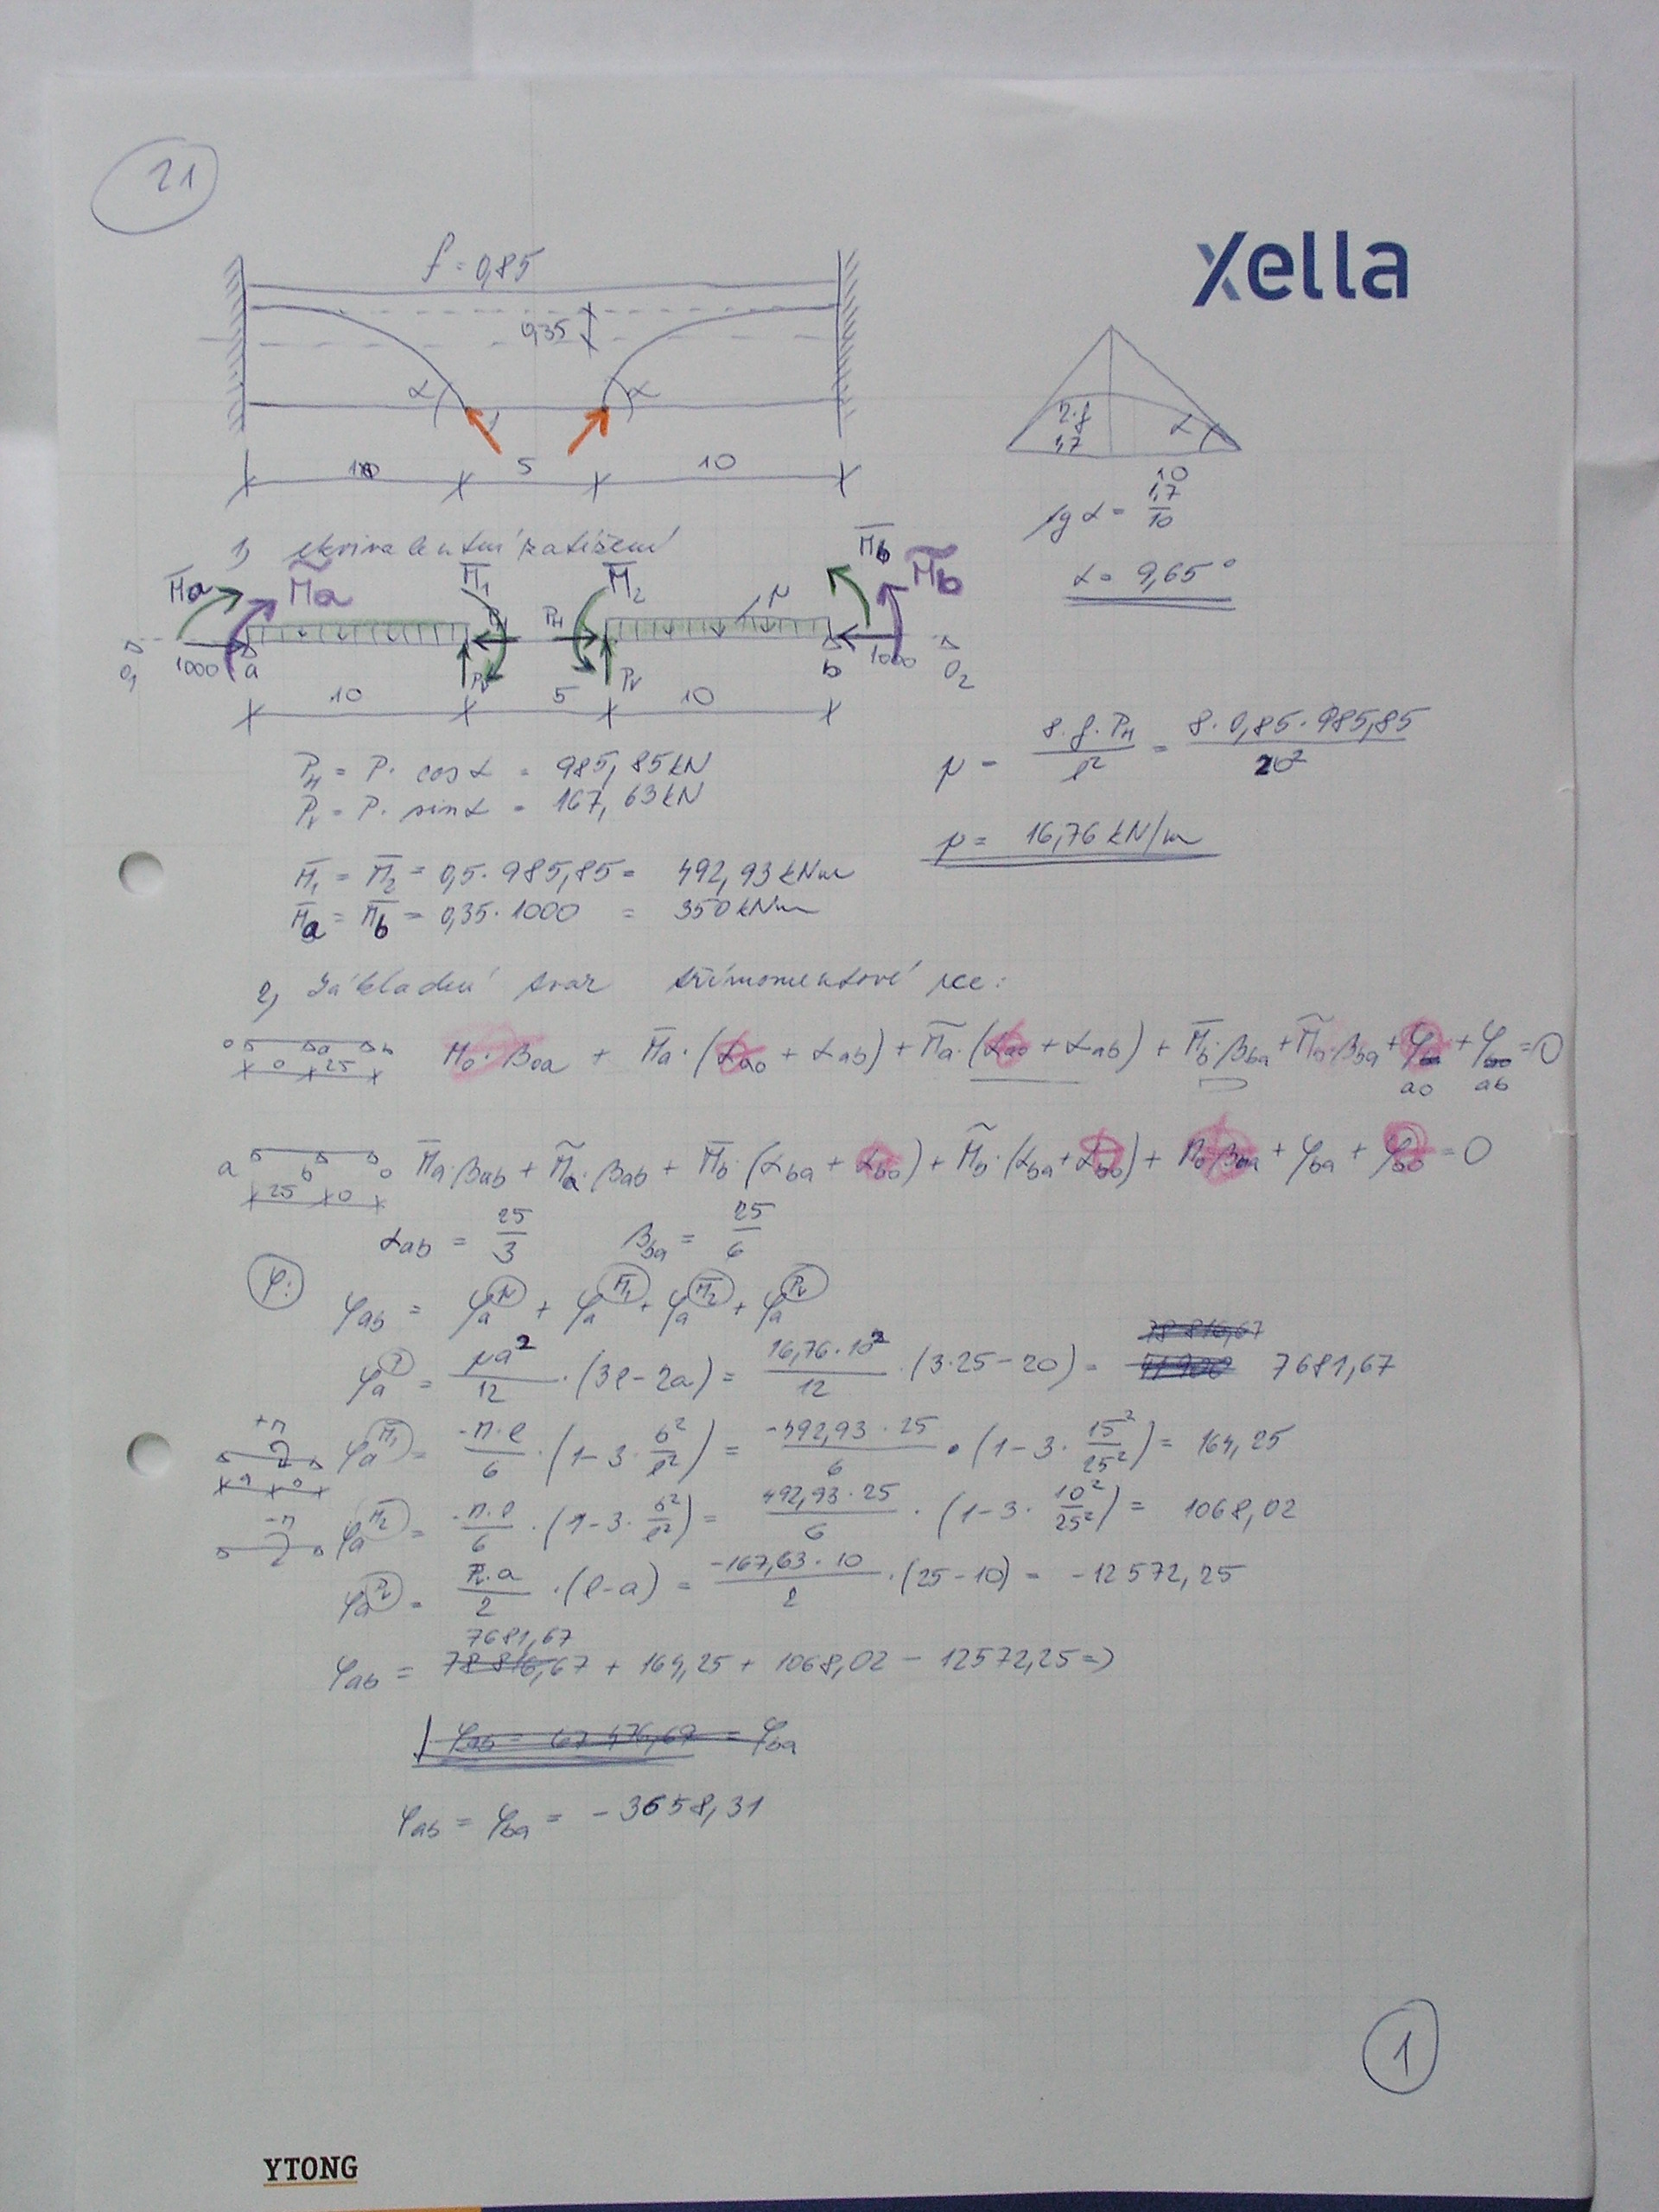 21
xella
f = 0,85
0,35
α
α
10
5
10
2·f
1,7
α
10
tg α = 1,7/10
α = 9,65°
1) ekvivalentní zatížení
M̅a
M̃a
M̅1
M̅2
M̅b
M̃b
PH
p
O1
1000
a
Pv
Pv
b
1000
O2
10
5
10
PH = P · cos α = 985,85 kN
Pv = P · sin α = 167,63 kN
p = 8·f·PH/l² = 8·0,85·985,85/20²
p = 16,76 kN/m
M̅1 = M̅2 = 0,5 · 985,85 = 492,93 kNm
M̅a = M̅b = 0,35 · 1000 = 350 kNm
2) Základní tvar třímomentové rce:
o a b
0 25
M0·β0a + M̅a·(αa0 + αab) + M̃a·(αa0 + αab) + M̅b·βba + M̃b·βba + φa0 + φab = 0
a b o
25 0
M̅a·βab + M̃a·βab + M̅b·(αba + αb0) + M̃b·(αba + αb0) + M0·β0a + φba + φb0 = 0
αab = 25/3 βba = 25/6
φ:
φab = φa^p + φa^M̅1 + φa^M̅2 + φa^Pv
φa^p = pa²/12 · (3l - 2a) = 16,76·10²/12 · (3·25 - 20) = 78 816,67 41 900 7681,67
+M
φa^M̅1 = -M·l/6 · (1 - 3·b²/l²) = -492,93·25/6 · (1 - 3·15²/25²) = 164,25
-M
φa^M̅2 = -M·l/6 · (1 - 3·b²/l²) = 492,93·25/6 · (1 - 3·10²/25²) = 1068,02
φa^Pv = Pv·a/2 · (l - a) = -167,63·10/2 · (25 - 10) = -12 572,25
7681,67
φab = 78 816,67 + 164,25 + 1068,02 - 12572,25 =>
φab = 67 476,69 = φba
φab = φba = -3658,31
1
YTONG